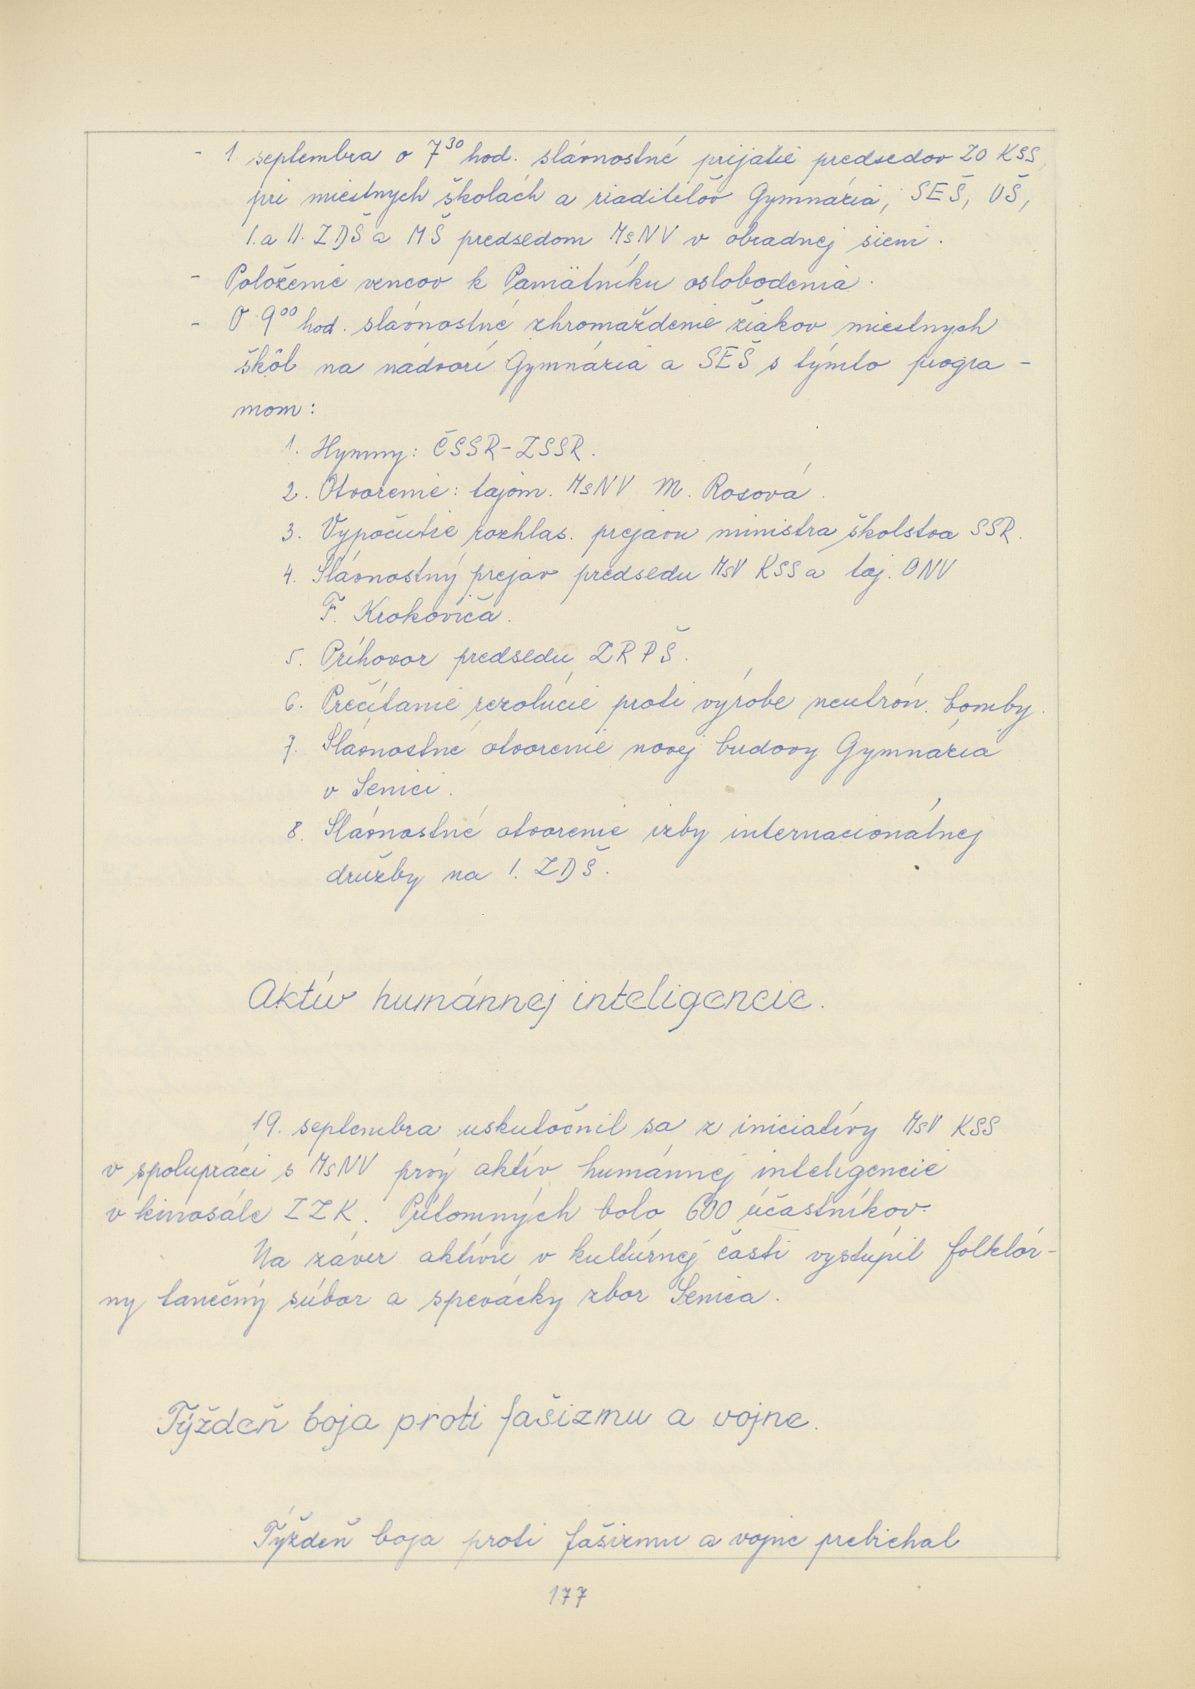 - 1. septembra o 7³⁰ hod. slávnostné prijatie predsedov ZO KSS
pri miestnych školách a riaditeľov Gymnázia, SEŠ, UŠ,
I. a II. ZDŠ a MŠ predsedom MsNV v obradnej sieni.
- Položenie vencov k Pamätníku oslobodenia.
- O 9⁰⁰ hod. slávnostné zhromaždenie žiakov miestnych
škôl na nádvorí Gymnázia a SEŠ s týmto progra-
mom:
1. Hymny: ČSSR-ZSSR.
2. Otvorenie: tajom. MsNV M. Rosová.
3. Vypočutie rozhlas. prejavu ministra školstva SSR.
4. Slávnostný prejav predsedu MsV KSS a taj. ONV
F. Krokoviča.
5. Príhovor predsedu ZRPŠ.
6. Prečítanie rezolúcie proti výrobe neutrón. bomby.
7. Slávnostné otvorenie novej budovy Gymnázia
v Senici.
8. Slávnostné otvorenie izby internacionálnej
družby na I. ZDŠ.
Aktív humánnej inteligencie.
19. septembra uskutočnil sa z iniciatívy MsV KSS
v spolupráci s MsNV prvý aktív humánnej inteligencie
v kinosále ZZK. Prítomných bolo 600 účastníkov.
Na záver aktívu v kultúrnej časti vystúpil folklór-
ny tanečný súbor a spevácky zbor Senica.
Týždeň boja proti fašizmu a vojne.
Týždeň boja proti fašizmu a vojne prebiehal
177